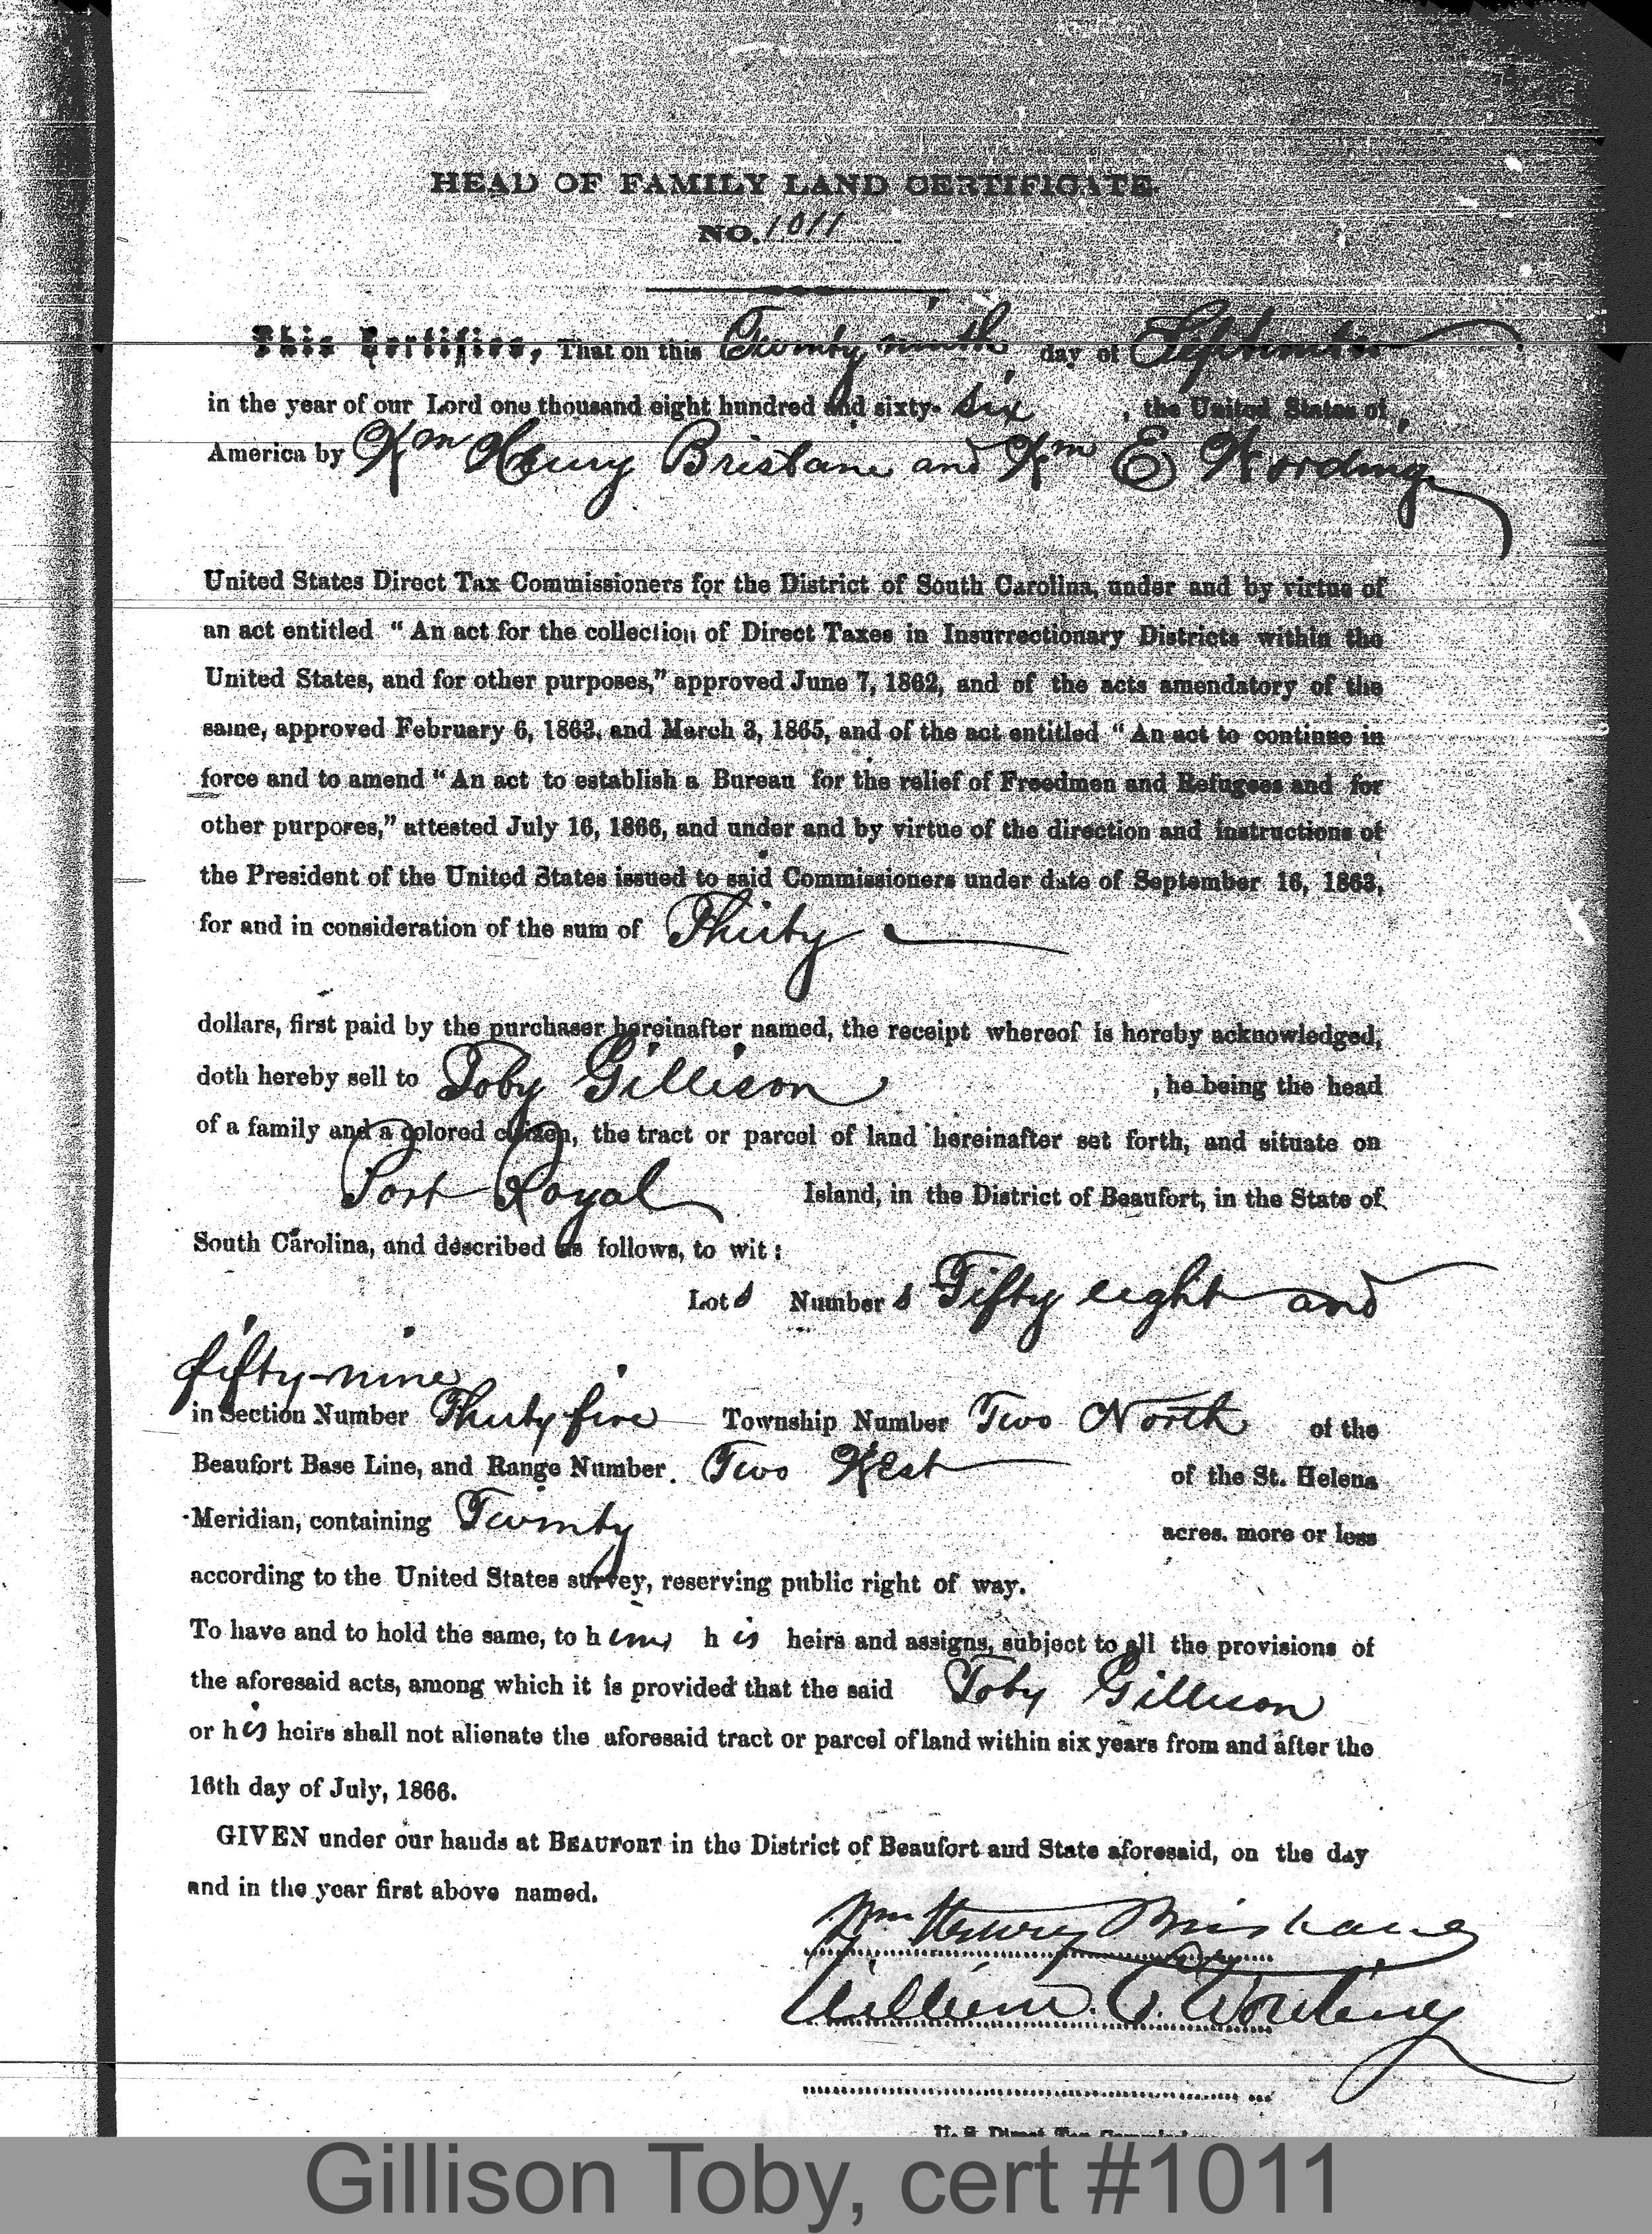 HEAD OF FAMILY LAND CERTIFICATE.
NO. 1011
This Certifies, That on this Twenty ninth day of September
in the year of our Lord one thousand eight hundred and sixty-six, the United States of
America by Wm Henry Brisbane and Wm E Wording
United States Direct Tax Commissioners for the District of South Carolina, under and by virtue of
an act entitled "An act for the collection of Direct Taxes in Insurrectionary Districts within the
United States, and for other purposes," approved June 7, 1862, and of the acts amendatory of the
same, approved February 6, 1863, and March 3, 1865, and of the act entitled "An act to continue in
force and to amend "An act to establish a Bureau for the relief of Freedmen and Refugees and for
other purpores," attested July 16, 1866, and under and by virtue of the direction and instructions of
the President of the United States issued to said Commissioners under date of September 16, 1863,
for and in consideration of the sum of Thirty
dollars, first paid by the purchaser hereinafter named, the receipt whereof is hereby acknowledged,
doth hereby sell to Toby Gillison, he being the head
of a family and a colored citizen, the tract or parcel of land hereinafter set forth, and situate on
Port Royal Island, in the District of Beaufort, in the State of
South Carolina, and described as follows, to wit:
Lots Numbers Fifty eight and
fifty-nine
in Section Number Thirty five Township Number Two North of the
Beaufort Base Line, and Range Number Two West of the St. Helena
Meridian, containing Twenty acres. more or less
according to the United States survey, reserving public right of way.
To have and to hold the same, to him, his heirs and assigns, subject to all the provisions of
the aforesaid acts, among which it is provided that the said Toby Gillison
or his heirs shall not alienate the aforesaid tract or parcel of land within six years from and after the
16th day of July, 1866.
GIVEN under our hands at BEAUFORT in the District of Beaufort and State aforesaid, on the day
and in the year first above named.
Wm Henry Brisbane
William E. Wording
U. S. Direct Tax Commissioners
Gillison Toby, cert #1011